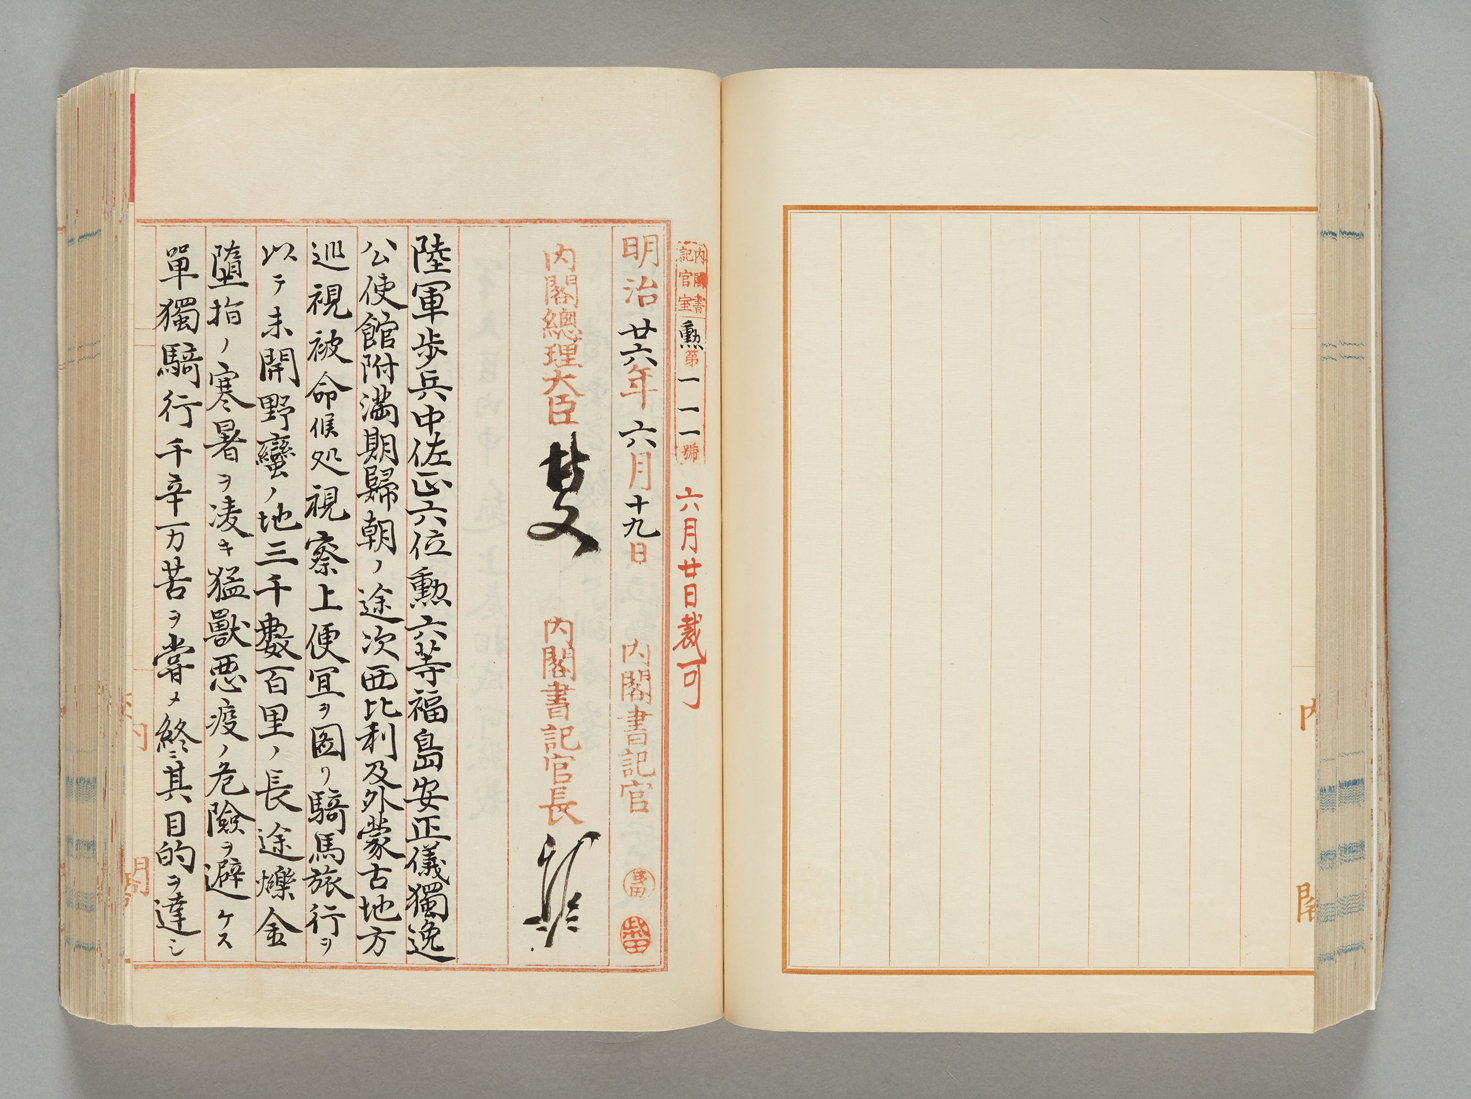 内閣書記官室 勲第一一一號 六月廿日裁可
明治廿六年六月十九日 内閣書記官
内閣總理大臣 内閣書記官長
陸軍歩兵中佐正六位勲六等福島安正儀獨逸
公使館附満期歸朝ノ途次西比利及外蒙古地方
巡視被命候処視察上便宜ヲ圖リ騎馬旅行ヲ
以テ未開野蠻ノ地三千數百里ノ長途爍金
墮指ノ寒暑ヲ凌キ猛獸悪疫ノ危險ヲ避ケス
單獨騎行千辛万苦ヲ嘗メ終ニ其目的ヲ達シ
内閣